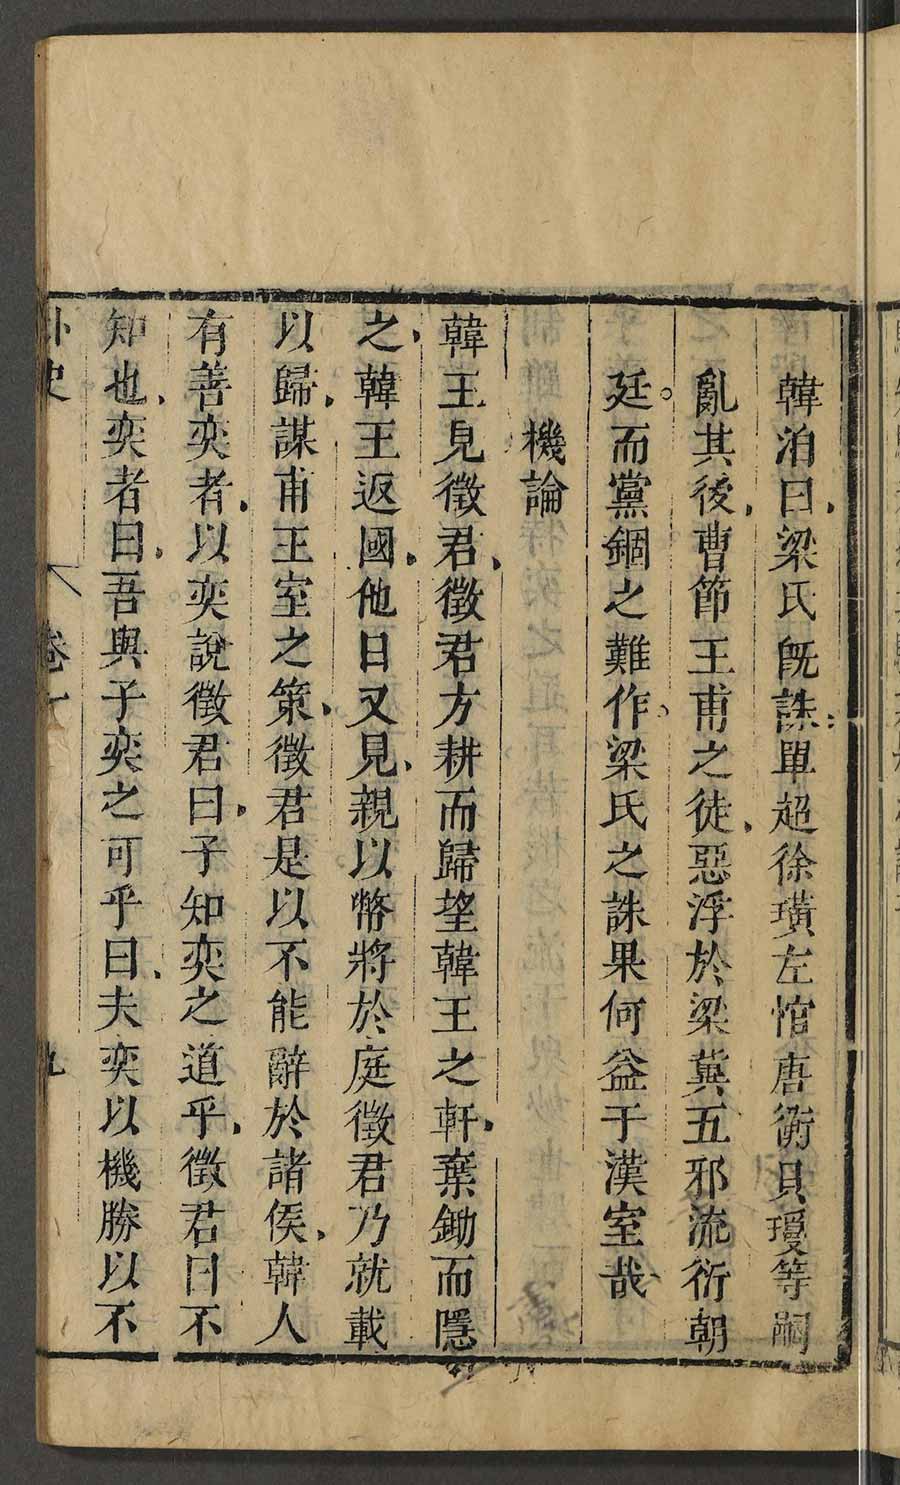 韓洎曰梁氏旣誅單超徐璜左悺唐衡貝瑗等嗣
亂其後曹節王甫之徒惡浮於梁冀五邪流衍朝
廷而黨錮之難作梁氏之誅果何益于漢室哉
機論
韓王見徵君徵君方耕而歸望韓王之軒棄鋤而隱
之韓王返國他日又見親以幣將於庭徵君乃就載
以歸謀甫王室之策徵君是以不能辭於諸侯韓人
有善奕者以奕說徵君曰子知奕之道乎徵君曰不
知也奕者曰吾與子奕之可乎曰夫奕以機勝以不
外史 卷十 九